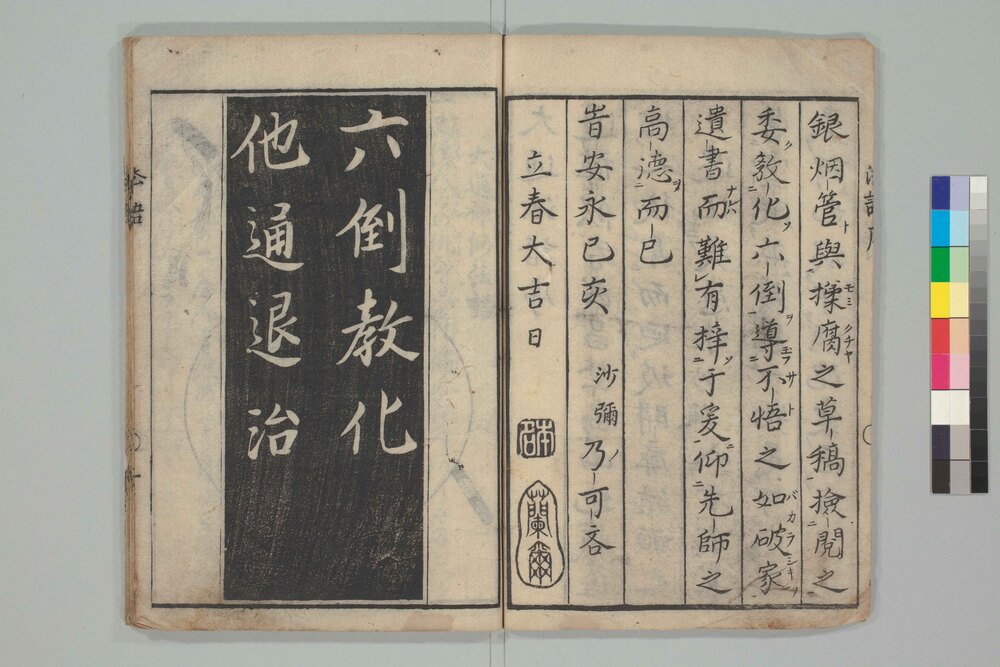 銀烟管與揉腐之草稿撿閲之
委教化六倒導不悟之如破家
遺書而難有捧于爰仰先師之
高德而已
旹安永己亥 沙彌乃可吝
立春大吉日
蘭爾
六倒教化
他通退治